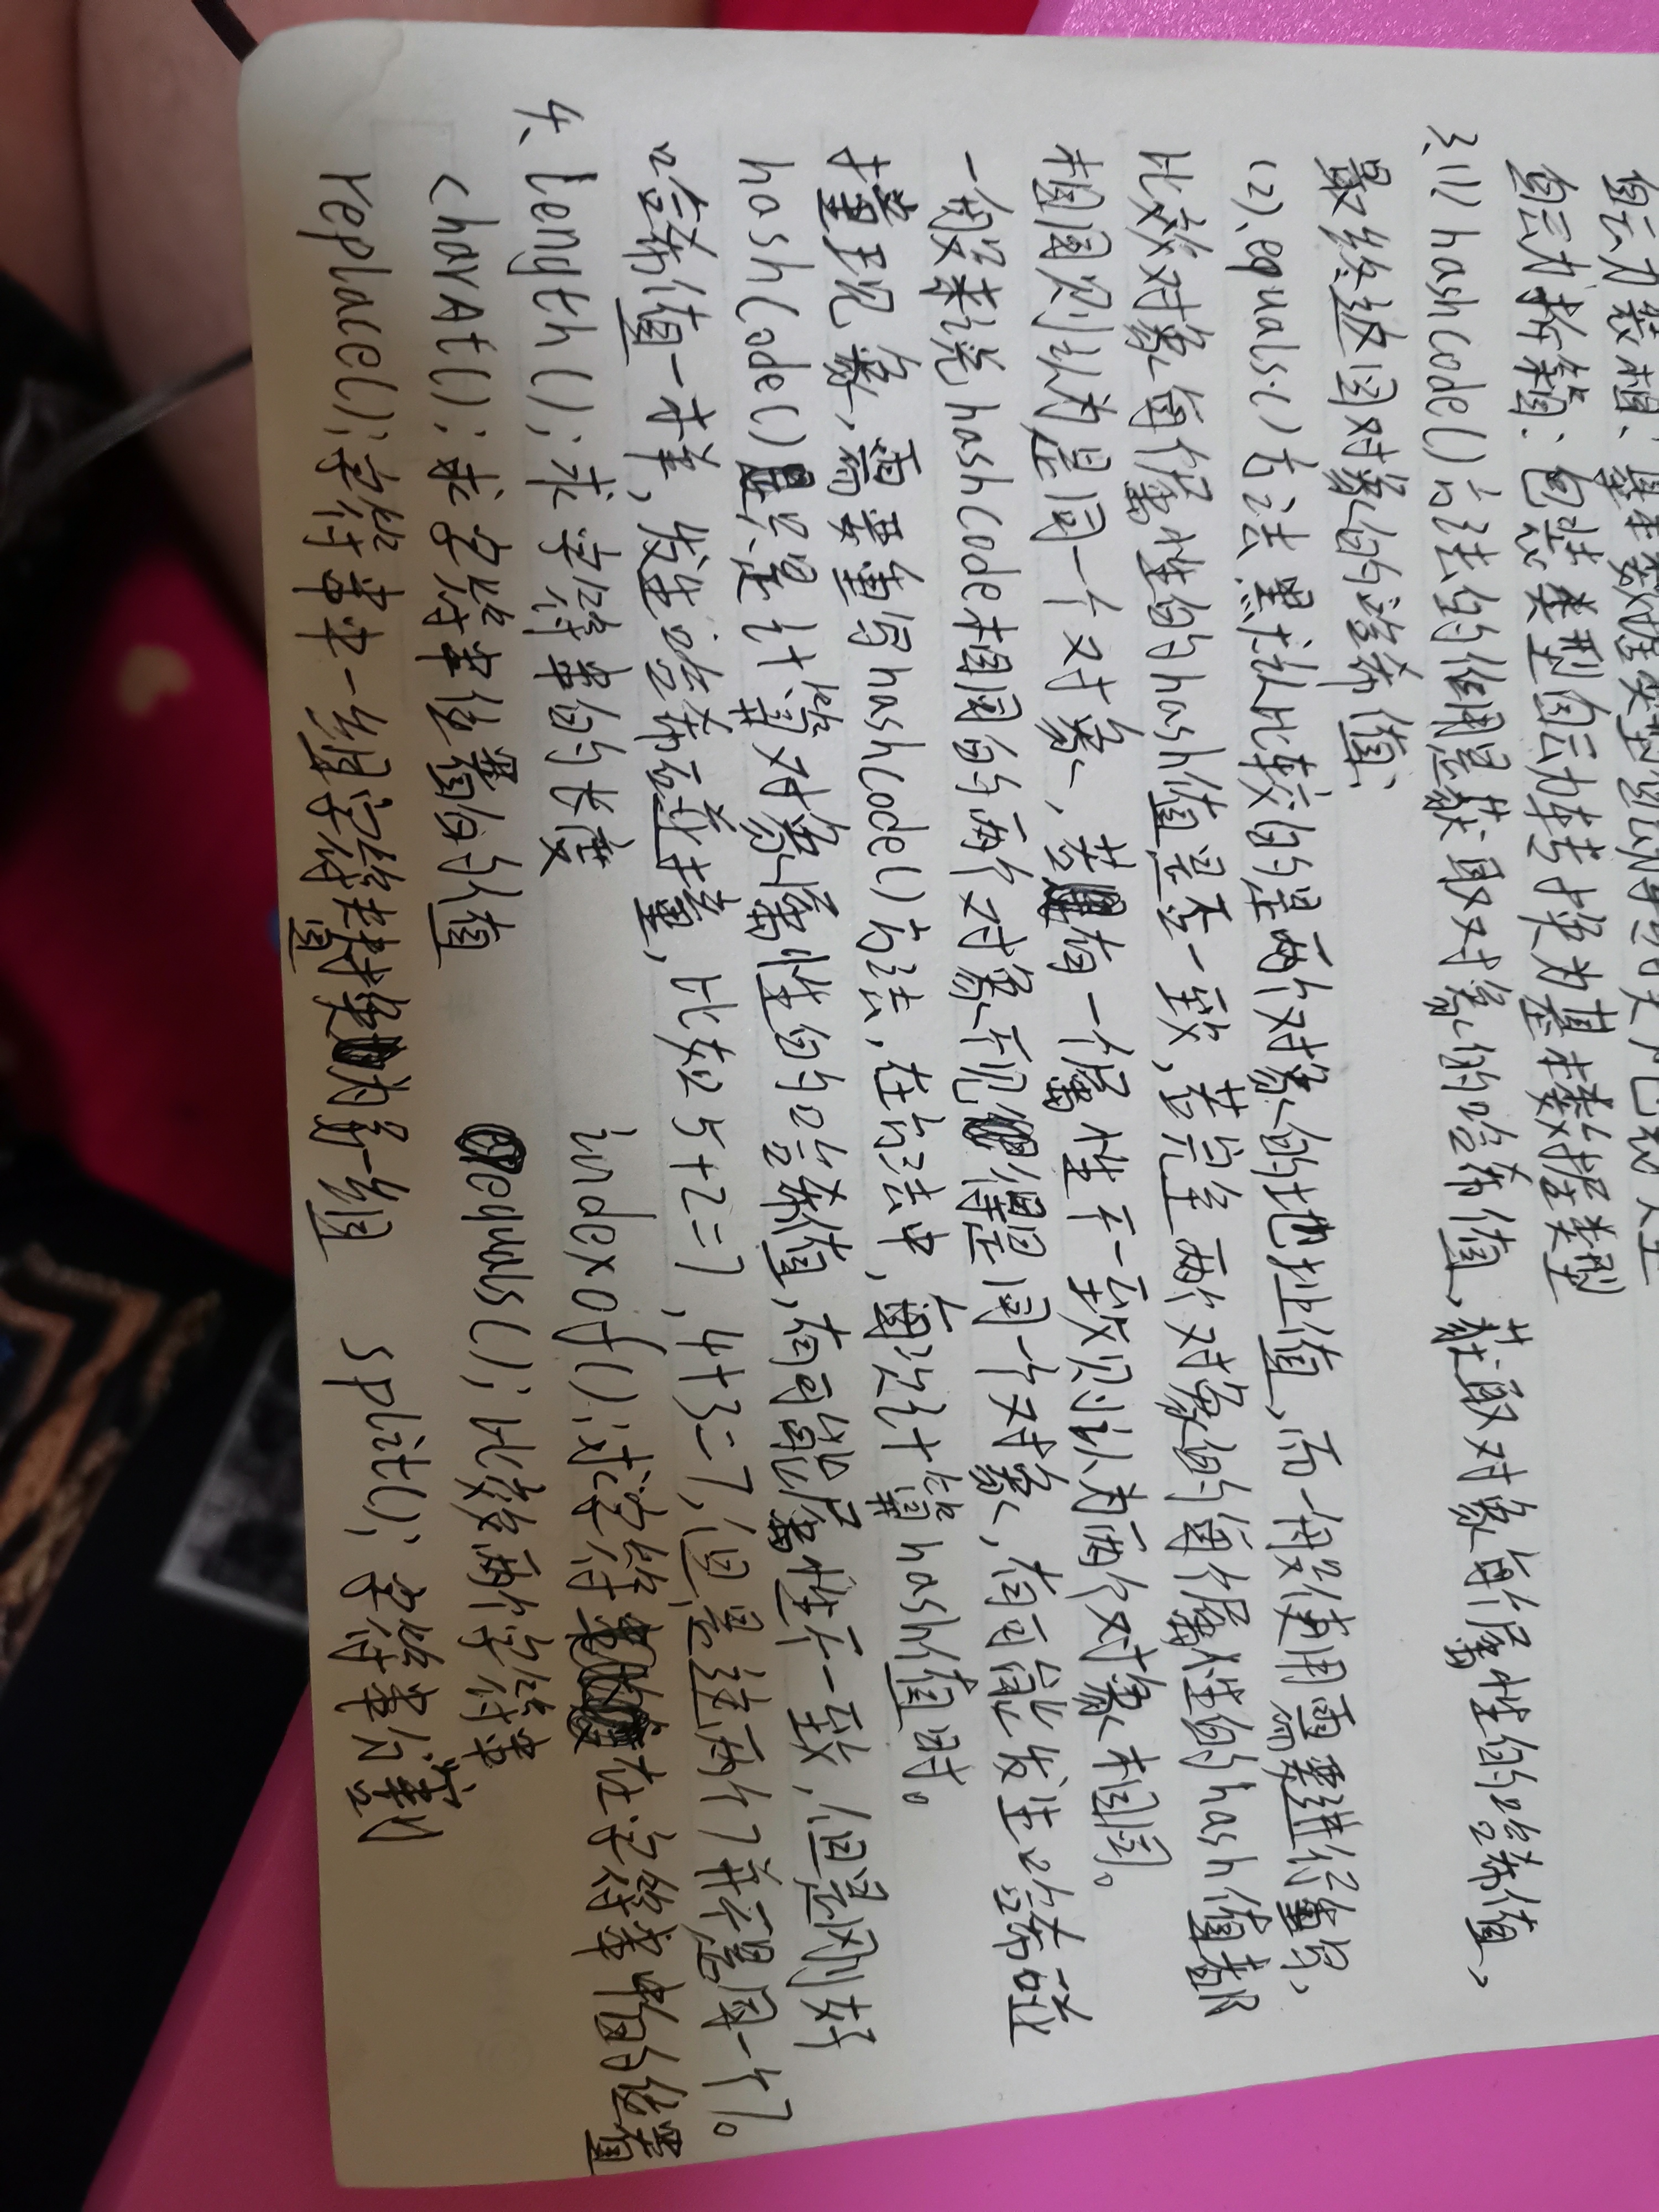 自动装箱：基本数据类型
自动拆箱：包装类型自动转换为基本数据类型
3、(1) hashCode()方法的作用是获取对象的哈希值，获取对象每个属性的哈希值，
最终返回对象的哈希值；
(2)、equals()方法默认比较的是两个对象的地址值，而一般使用需要进行重写，
比较对象每个属性的hash值是否一致，若完全两个对象的每个属性的hash值都
相同则认为是同一个对象，若有一个属性不一致则认为两个对象不相同。
一般来说hashCode相同的两个对象不见得是同一个对象，有可能发生哈希碰
撞现象，需要重写hashCode()方法，在方法中，每次计算hash值时。
hashCode()只是计算对象属性的哈希值，有可能属性不一致，但是刚好
哈希值一样，发生哈希碰撞，比如5+2=7，4+3=7，但是这两个7并不是同一个7。
4、length()：求字符串的长度 indexof()：求字符在字符串中的位置值
charAt()：求字符串位置的值 equals()：比较两个字符串
replace()：字符串中一组字符替换为另一组 split()：字符串分割